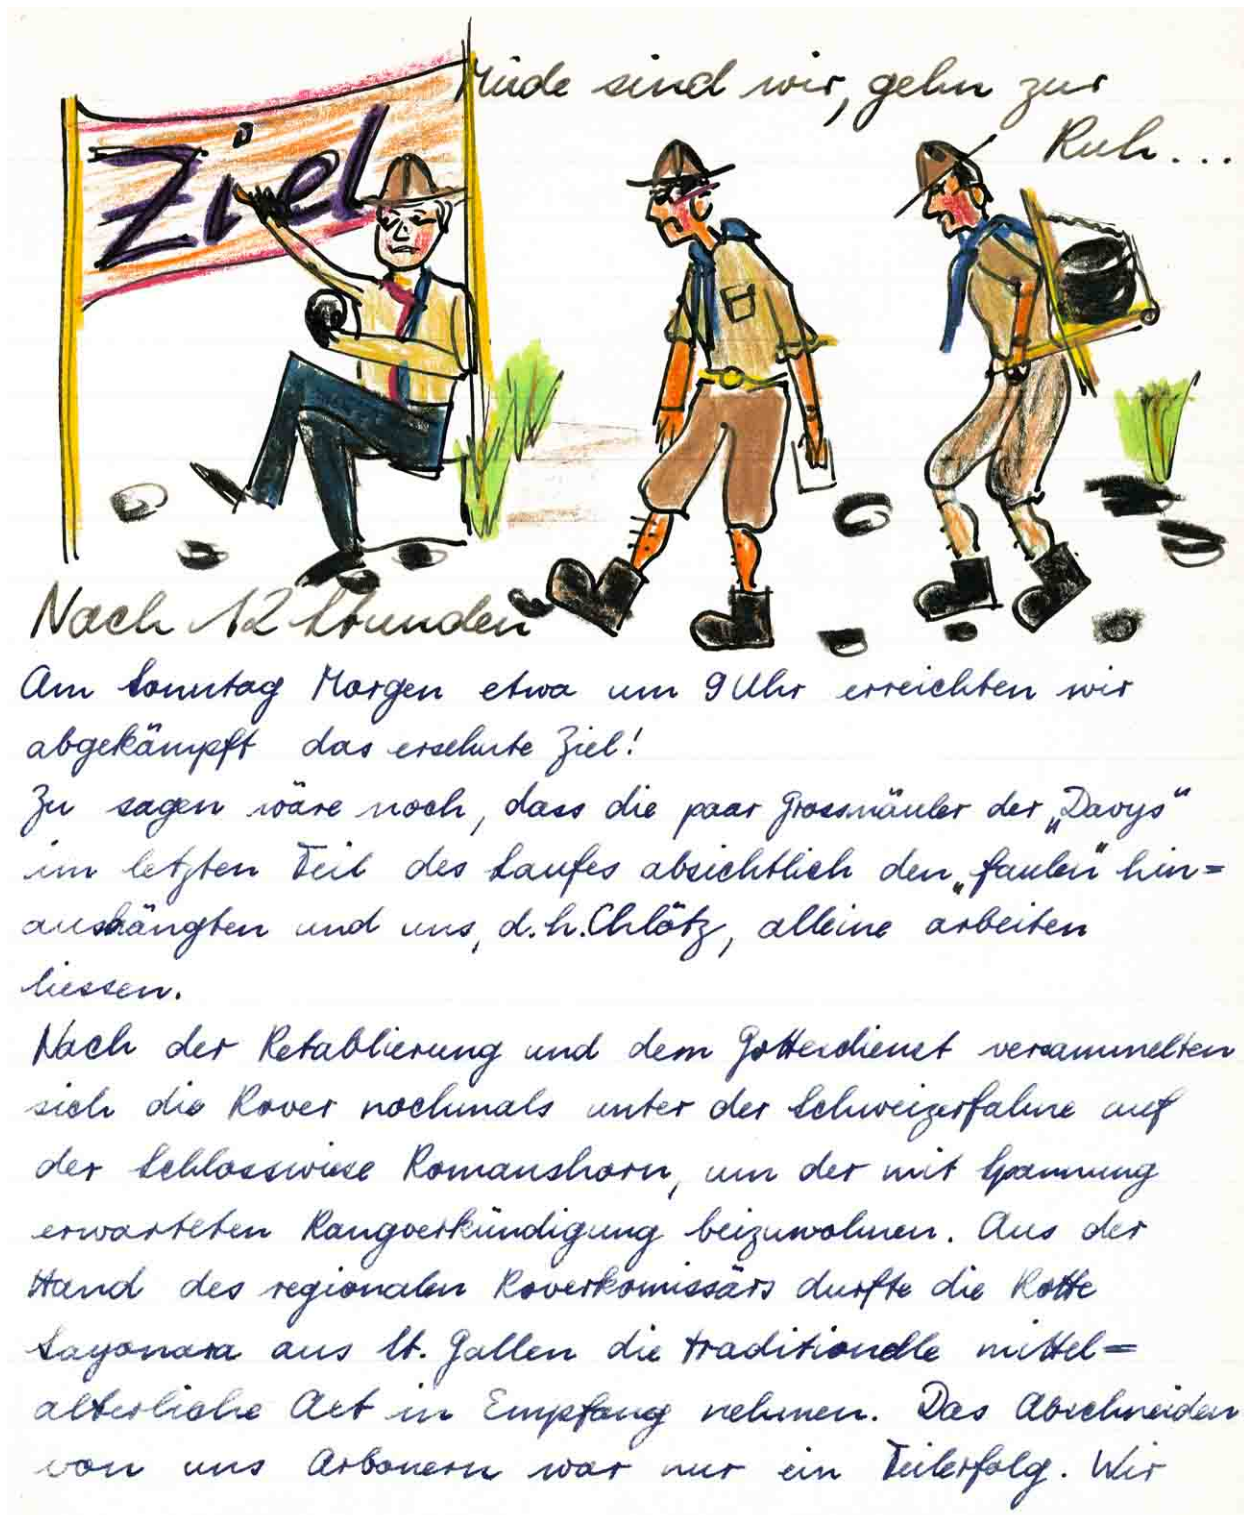 Müde sind wir, gehn zur
Ruh...
Ziel
Nach 12 Stunden
Am Sonntag Morgen etwa um 9 Uhr erreichten wir
abgekämpft das ersehnte Ziel!
Zu sagen wäre noch, dass die paar Grossmäuler der „Davys"
im letzten Teil des Laufes absichtlich den „faulen" hin=
aushängten und uns, d.h. Chlötz, alleine arbeiten
liessen.
Nach der Retablierung und dem Gottesdienst versammelten
sich die Rover nochmals unter der Schweizerfahne auf
der Schlosswiese Romanshorn, um der mit Spannung
erwarteten Rangverkündigung beizuwohnen. Aus der
Hand des regionalen Roverkomissärs durfte die Rotte
Sayonara aus St. Gallen die traditionelle mittel=
alterliche Axt in Empfang nehmen. Das Abschneiden
von uns Arbonern war nur ein Teilerfolg. Wir